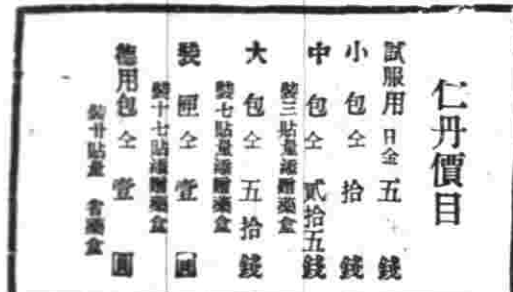 仁丹價目
試服用 日金 五 錢
小 包 仝 拾 錢
中 包 仝 貳拾五錢
裝三貼量添贈藥盒
大 包 仝 五拾錢
裝七貼量添贈藥盒
裝 匣 仝 壹 圓
裝十七貼添贈藥盒
德用包 仝 壹 圓
裝廿貼量 省藥盒